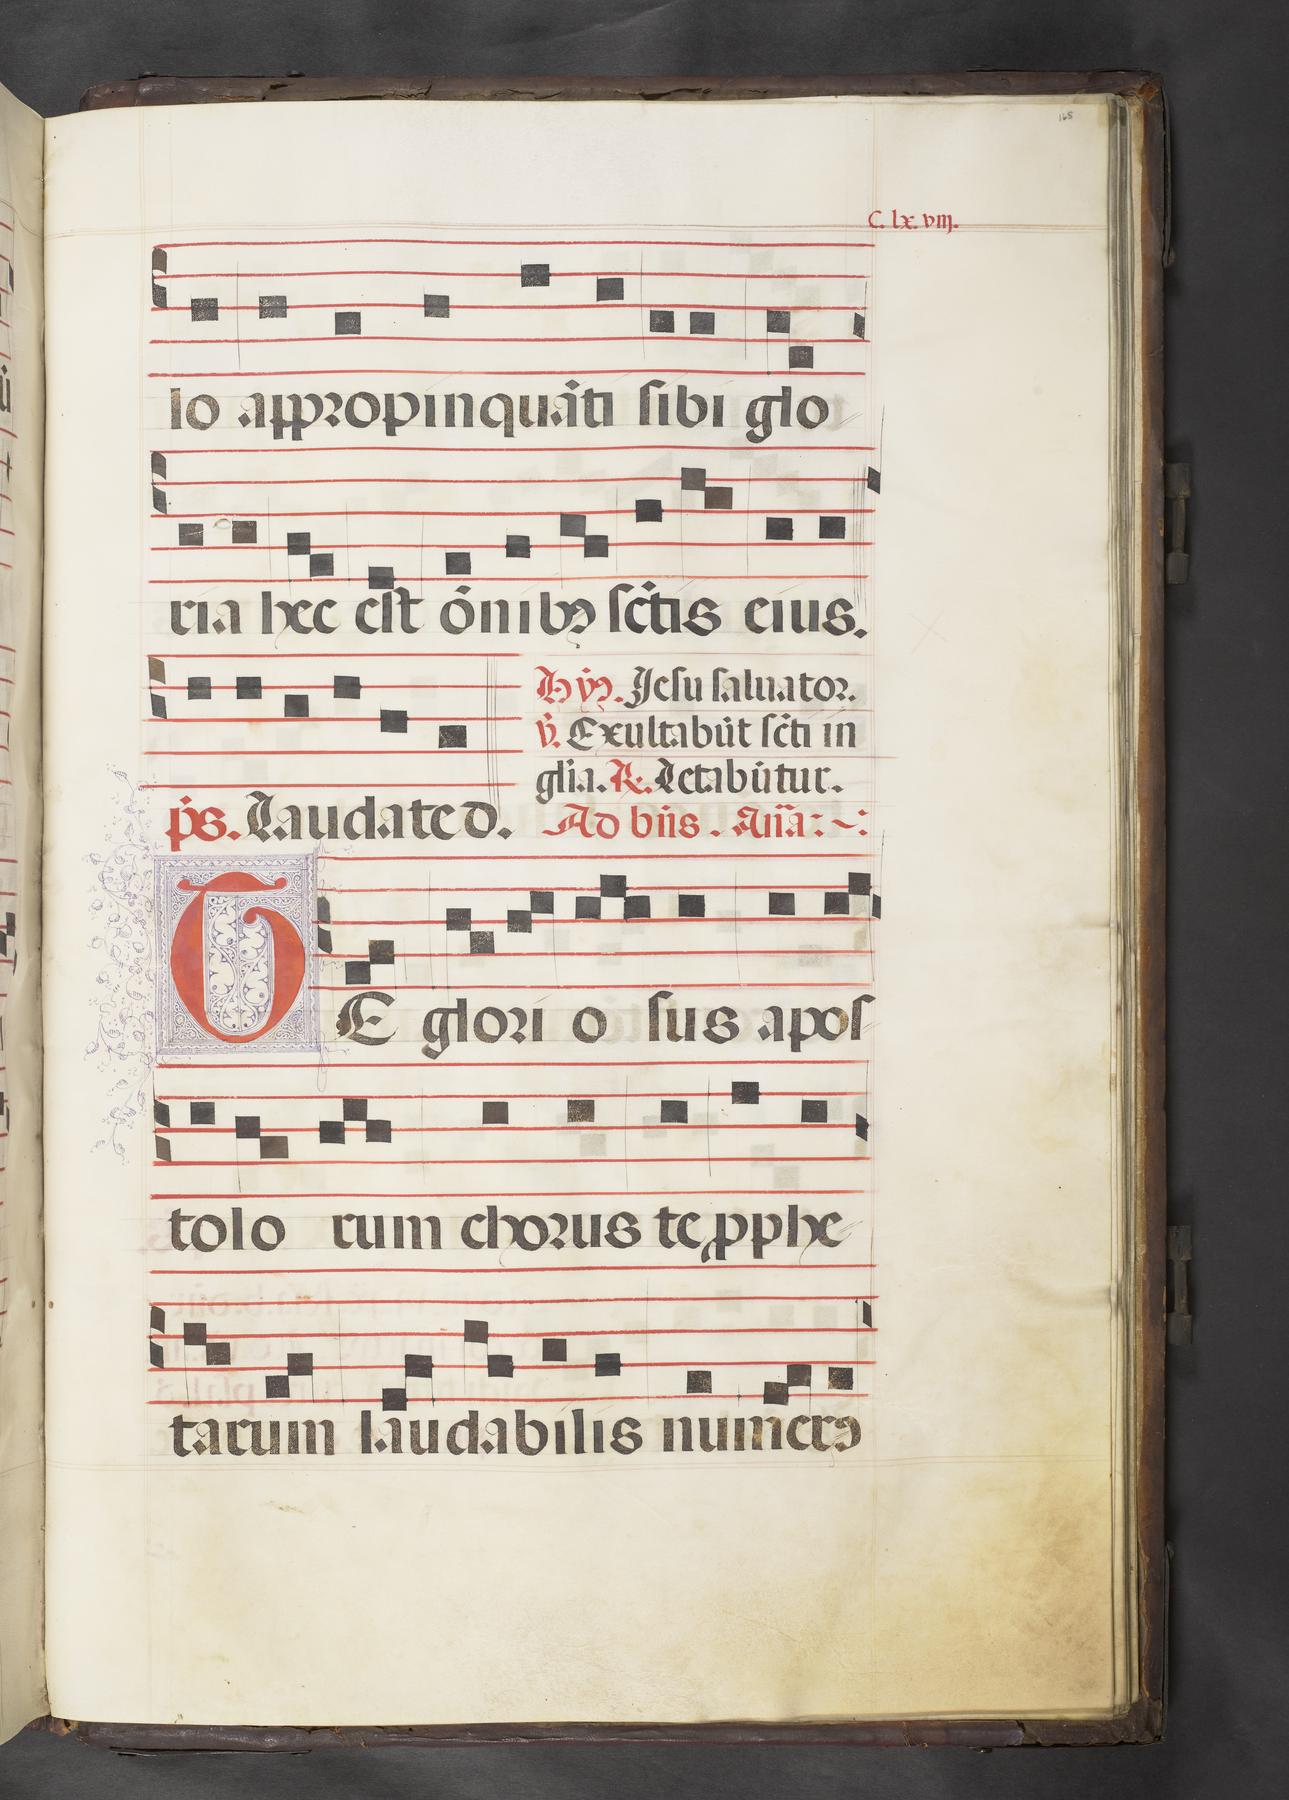 165
C. lx. viij.
lo appropinquāti sibi glo
ria hec est ōnibꝰ sc̄tis eius.
Hyꝰ. Jesu saluator.
V̄. Exultabūt sc̄ti in
gl̄ia. R. Letabūtur.
p̄s. Laudate d. Ad bn̄s. Añā:~:
TE glori o sus apos
tolo rum chorus te ꝓphe
tarum laudabilis numerꝰ